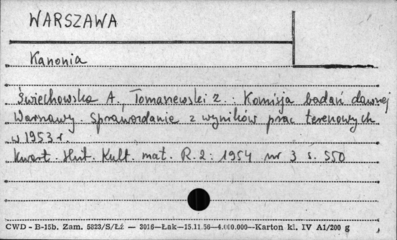 WARSZAWA
Kanonia
Świechowska A., Tomaszewski Z.: Komisja badań dawnej
Warszawy. Sprawozdanie z wyników prac terenowych
w 1953 r.
Kwart. Hist. Kult. mat. R. 2: 1954 nr 3 s. 550
CWD - B-15b. Zam. 5823/S/Łź — 3016—Łak—15.11.56—4.000.000—Karton kl. IV A1/200 g